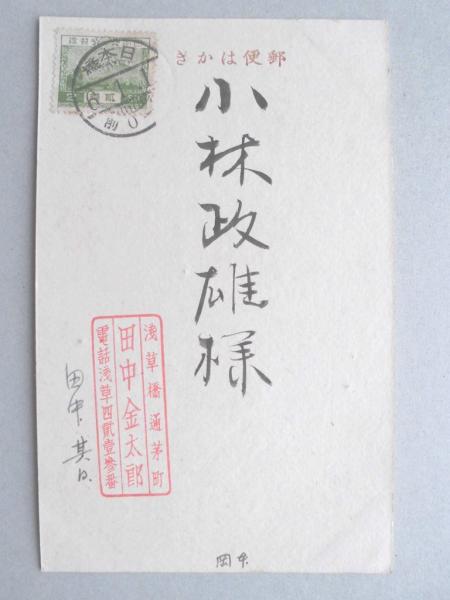 郵便はかき
小林政雄様
浅草橋通茅町
田中金太郎
電話浅草四貳壹參番
田中
日本橋
岡本